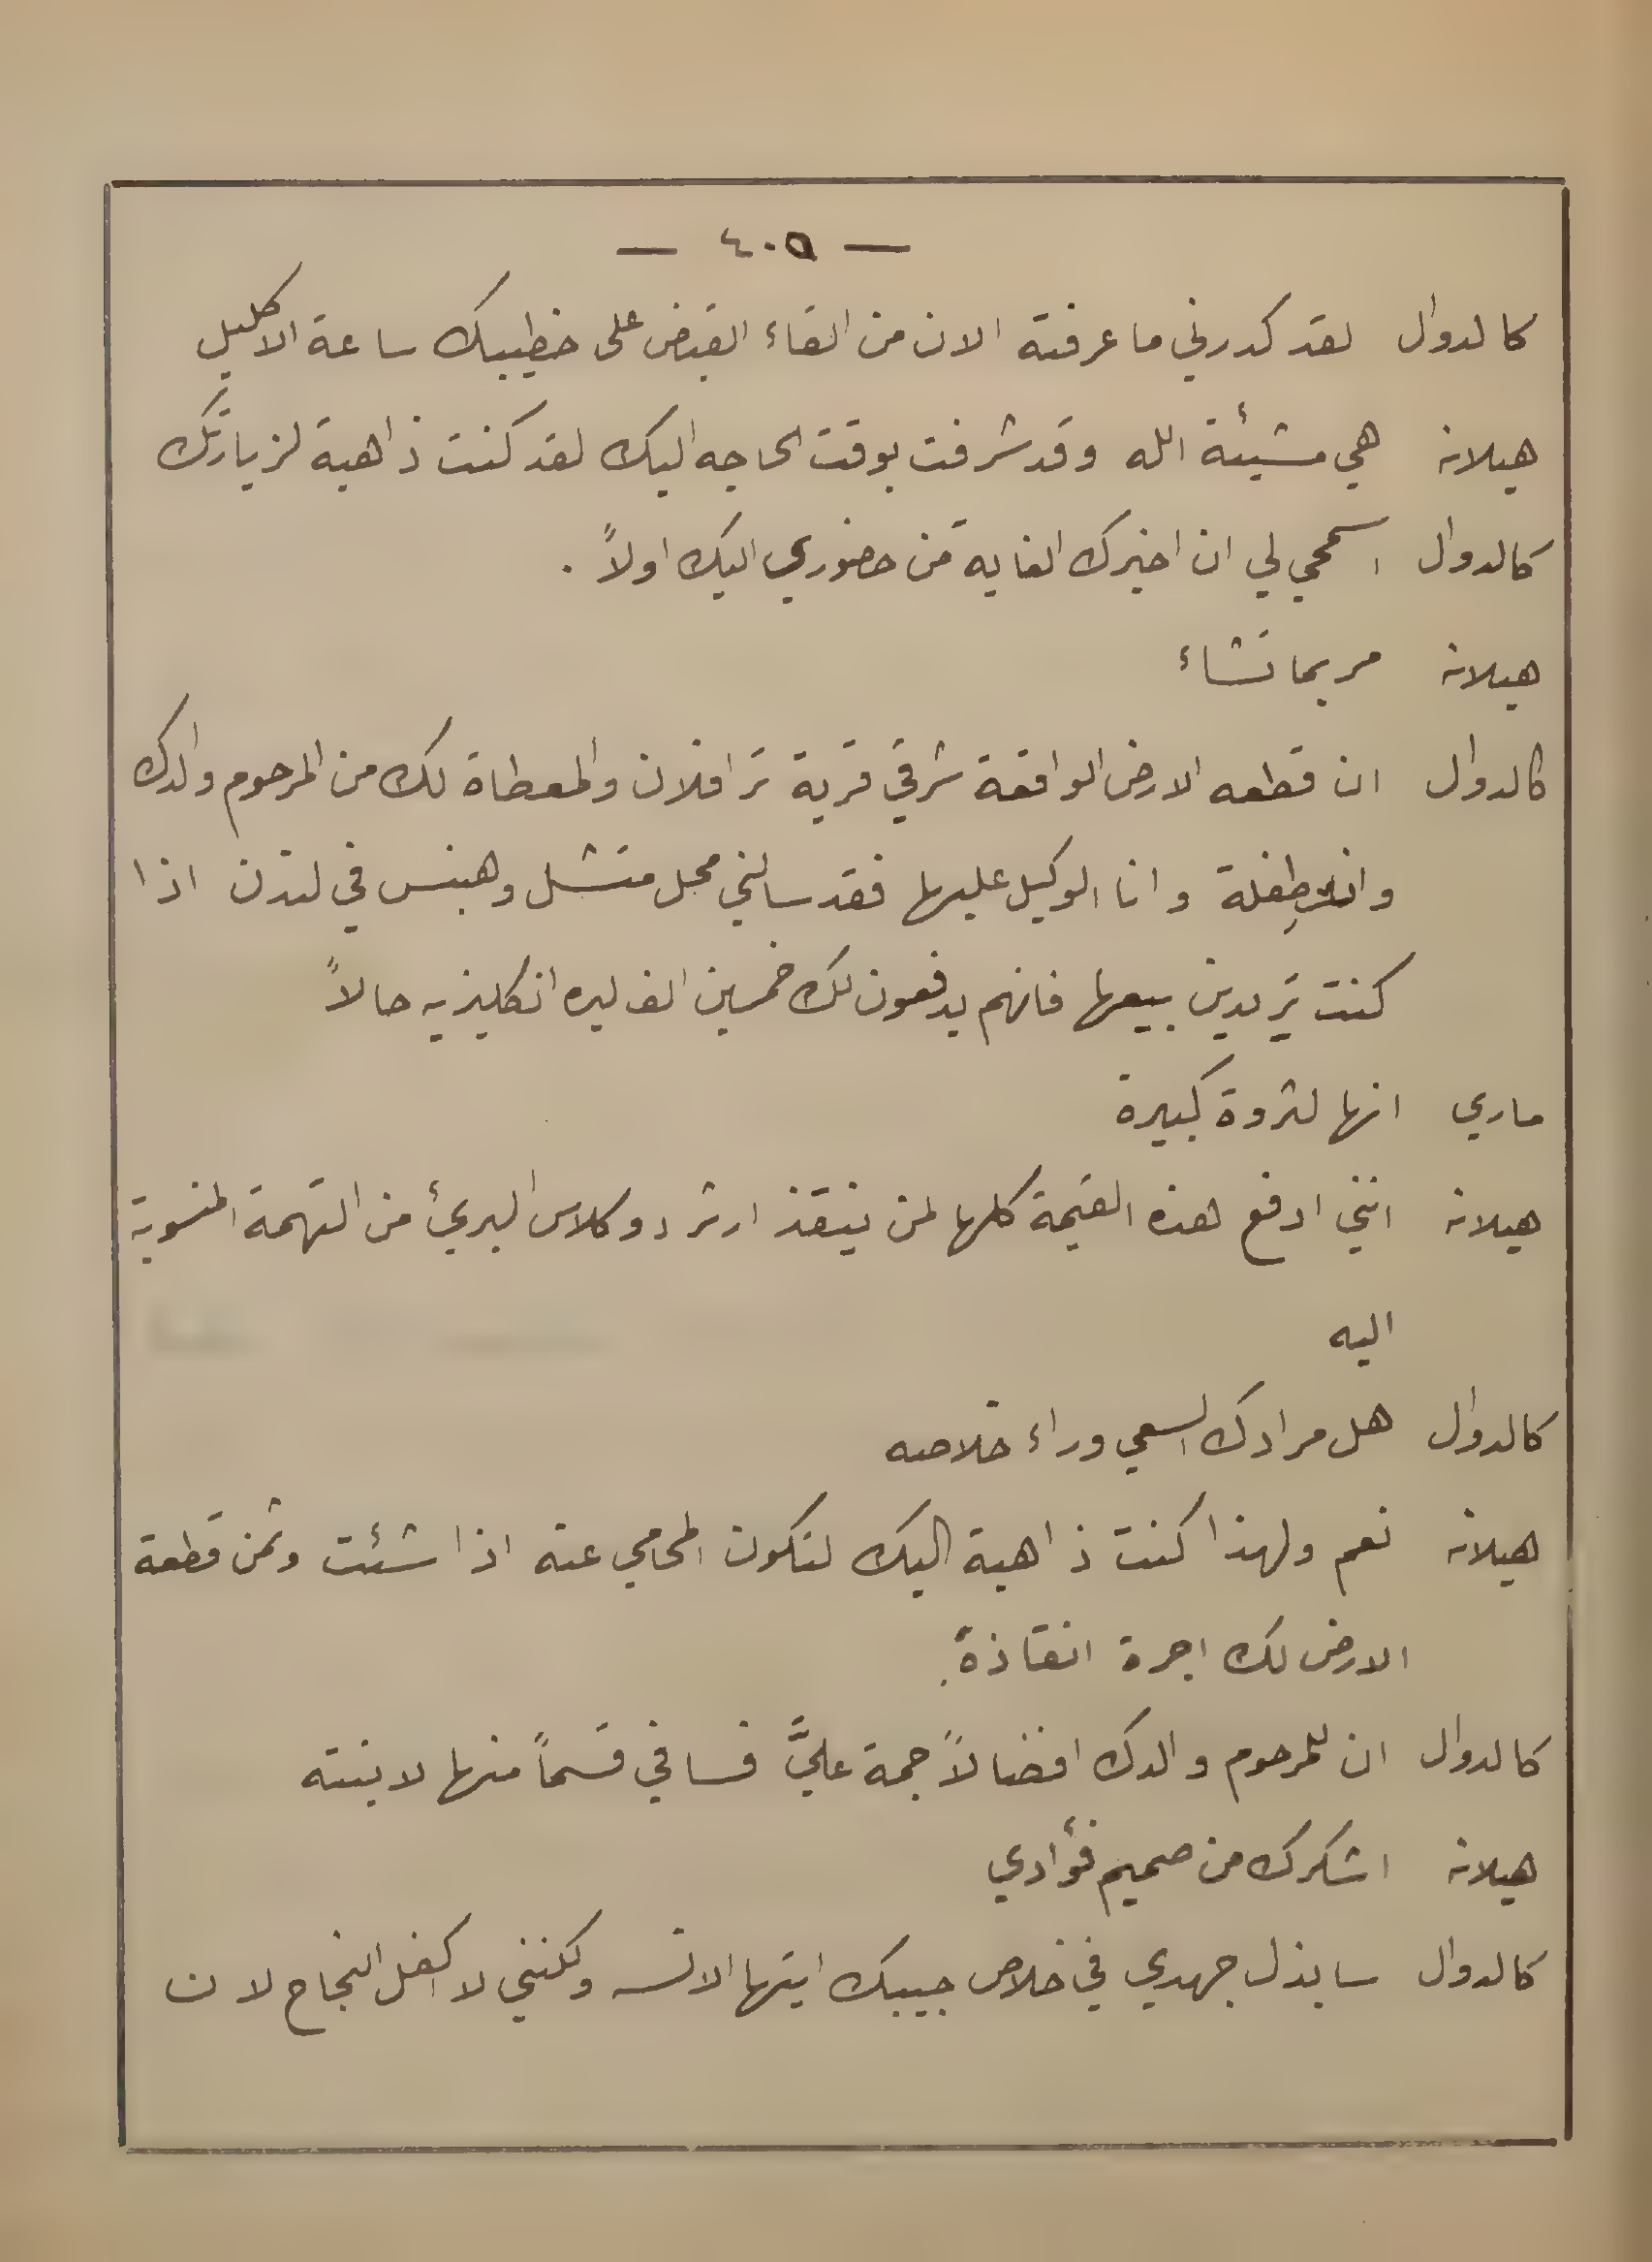 — ٤٠٥ —
كالدوال لقد كدرني ما عرفته الان من القاء القبض على خطيبك ساعة الاكليل
هيلانه هي مشيئة الله وقد شرفت بوقت الحاجه اليك لقد كنت ذاهبة لزيارتك
كالدوال اسمحي لي ان اخبرك الغايه من حضوري اليك اولاً .
هيلانه مر بما تشاء
كالدوال ان قطعه الارض الواقعة شرقي قرية ترافلان والمعطاة لك من المرحوم والدك
وانت طفلة وانا الوكيل عليها فقد سالني محل منشل وهبنس في لندن اذا
كنت تريدين بيعها فانهم يدفعون لك خمسين الف ليره انكليزيه حالاً
ماري انها لثروة كبيرة
هيلانه انني ادفع هذه القيمة كلها لمن ينقذ ارثر دوكلاس البريئ من التهمة المنسوبة
اليه
كالدوال هل مرادك السعي وراء خلاصه
هيلانه نعم ولهذا كنت ذاهبة اليك لتكون المحامي عنه اذا شئت وثمن قطعة
الارض لك اجرة انقاذه.
كالدوال ان للمرحوم والدك افضالاً جمة عليَّ فسافي قسماً منها لابنته
هيلانه اشكرك من صميم فؤادي
كالدوال سابذل جهدي في خلاص حبيبك ايتها الانسه ولكنني لا اكفل النجاح لان